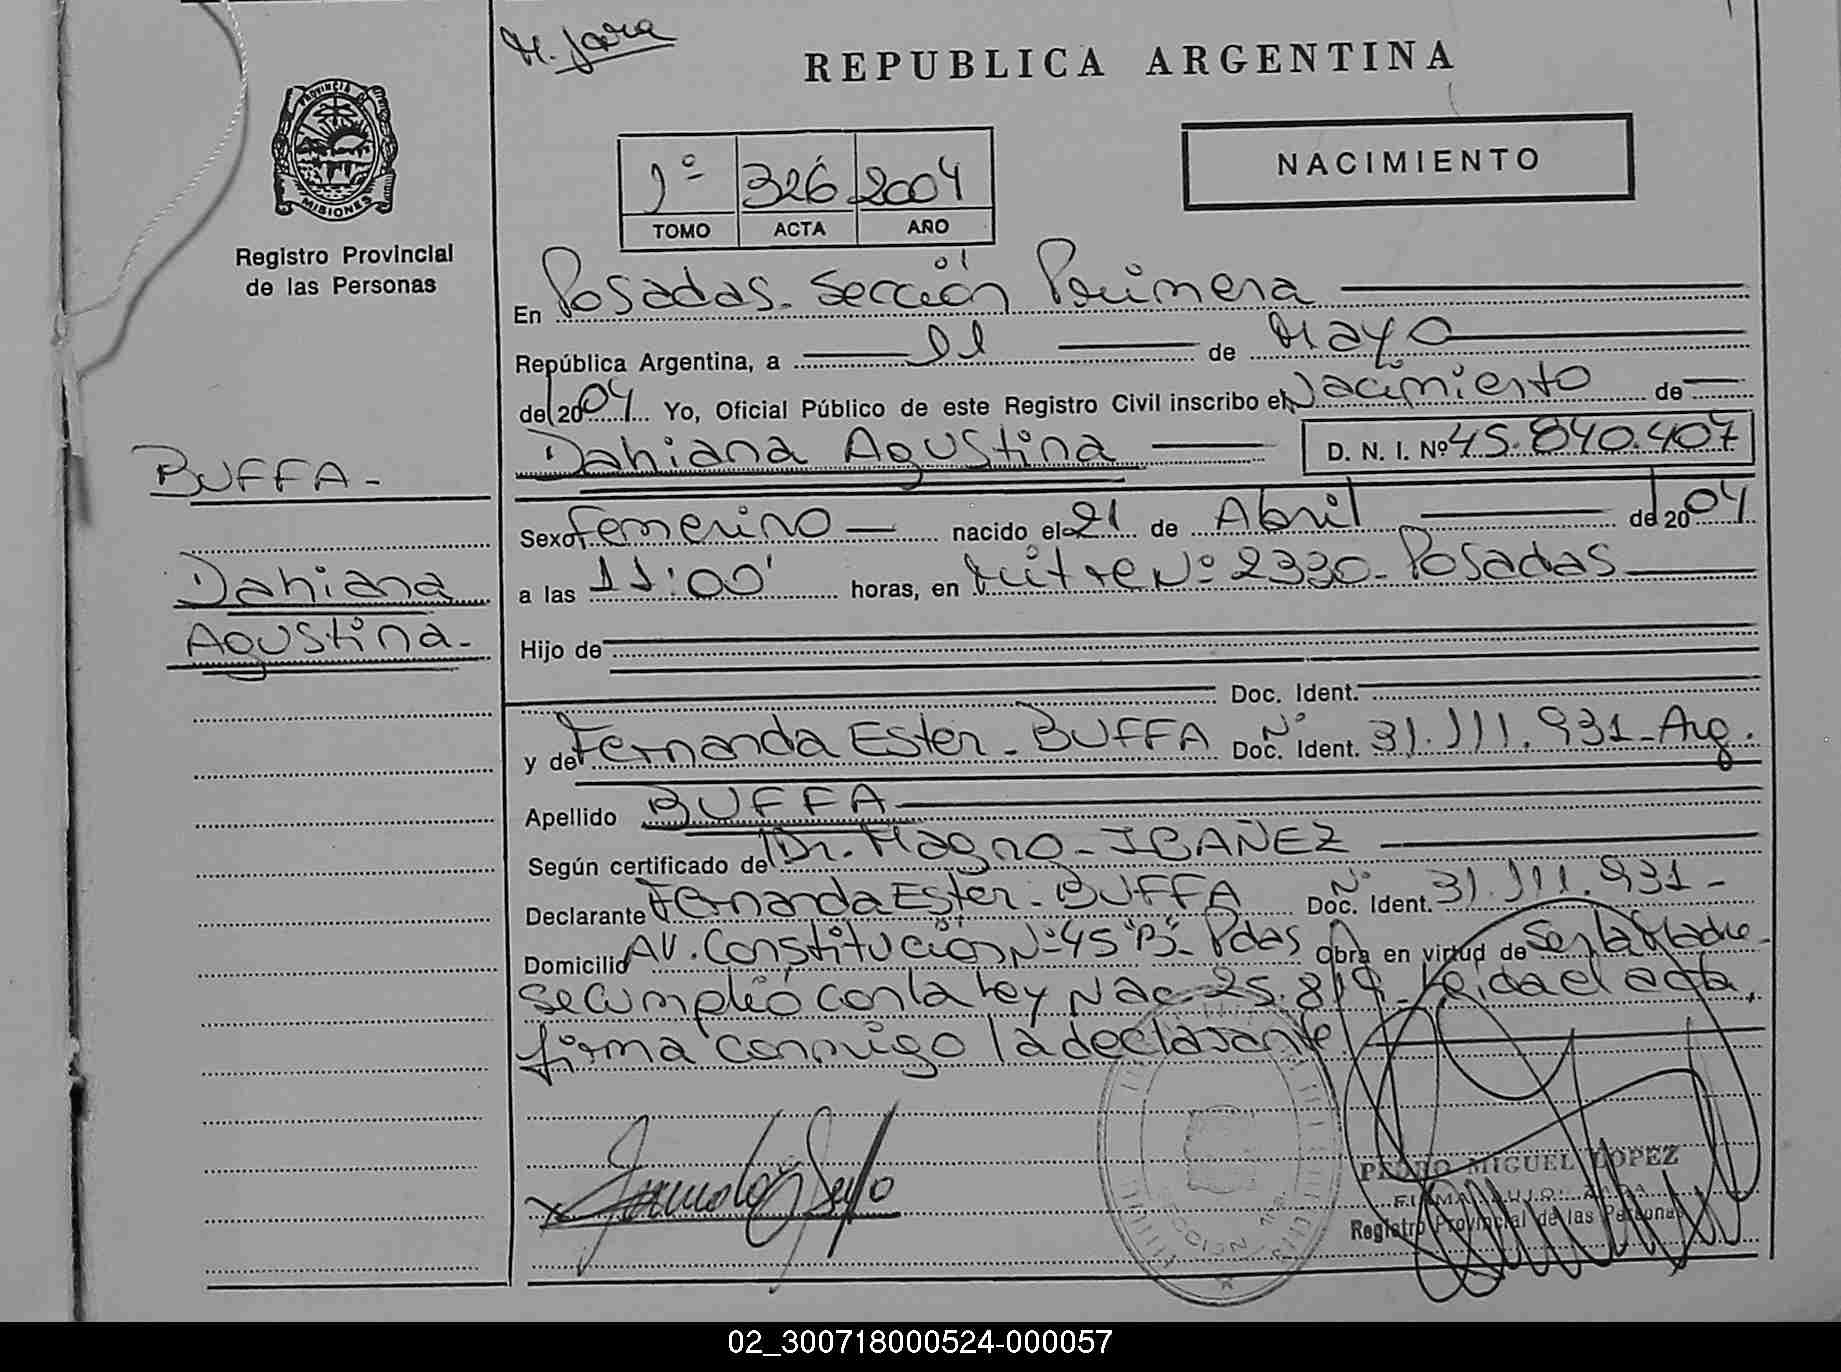 M. Jara
REPUBLICA ARGENTINA
PROVINCIA DE
MISIONES
Registro Provincial
de las Personas
1º 326 2004
TOMO ACTA AÑO
NACIMIENTO
En Posadas. Sección Primera
República Argentina, a 11 de Mayo
del 2004 Yo, Oficial Público de este Registro Civil inscribo el Nacimiento de
Dahiana Agustina D. N. I. Nº 45.840.407
BUFFA-
Dahiana
Agustina-
Sexo Femenino nacido el 21 de Abril del 2004
a las 11:00' horas, en Mitre Nº 2330- Posadas
Hijo de
Doc. Ident.
y de Fernanda Ester- BUFFA Doc. Nº Ident. 31.111.931-Arg.
Apellido BUFFA
Según certificado del Dr. Magno- IBAÑEZ
Declarante Fernanda Ester- BUFFA Doc. Nº Ident. 31.111.931-
Domicilio AV. Constitución Nº 45 "B"- Pdas Obra en virtud de Ser la Madre-
se cumplió con la Ley Nac- 25.819- Leída el acta,
firma conmigo la declarante
PEDRO MIGUEL LOPEZ
Registro Provincial de las Personas
02_300718000524-000057